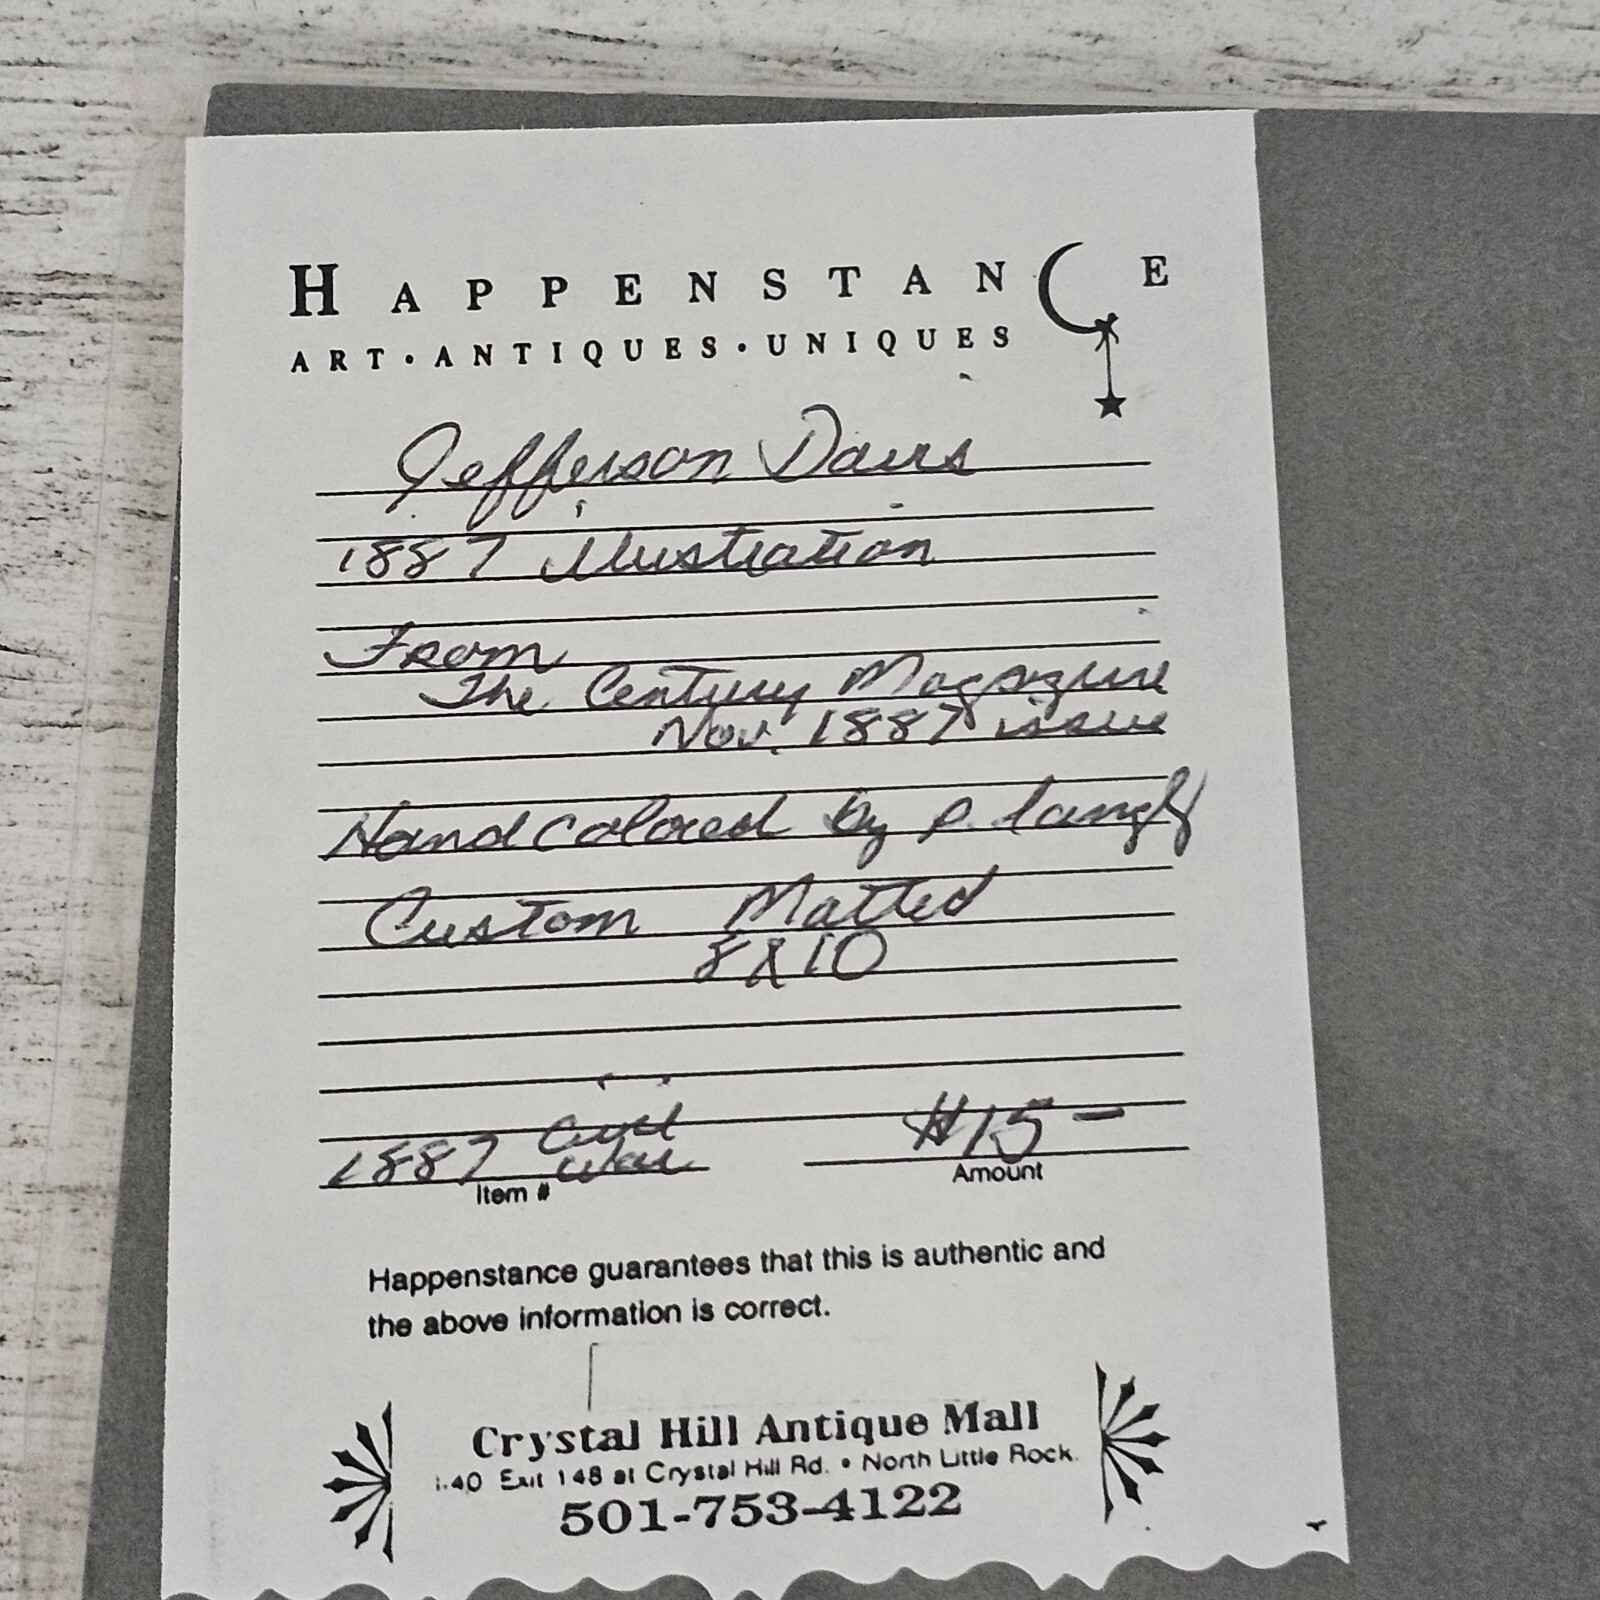 HAPPENSTANCE
ART • ANTIQUES • UNIQUES
Jefferson Davis
1887 Illustration
From
The Century Magazine
Nov. 1887 issue
Hand colored by P. Langly
Custom Matted
8X10
1887 Civil
War
$15 –
Item #
Amount
Happenstance guarantees that this is authentic and
the above information is correct.
Crystal Hill Antique Mall
I-40 Exit 148 at Crystal Hill Rd. • North Little Rock
501-753-4122